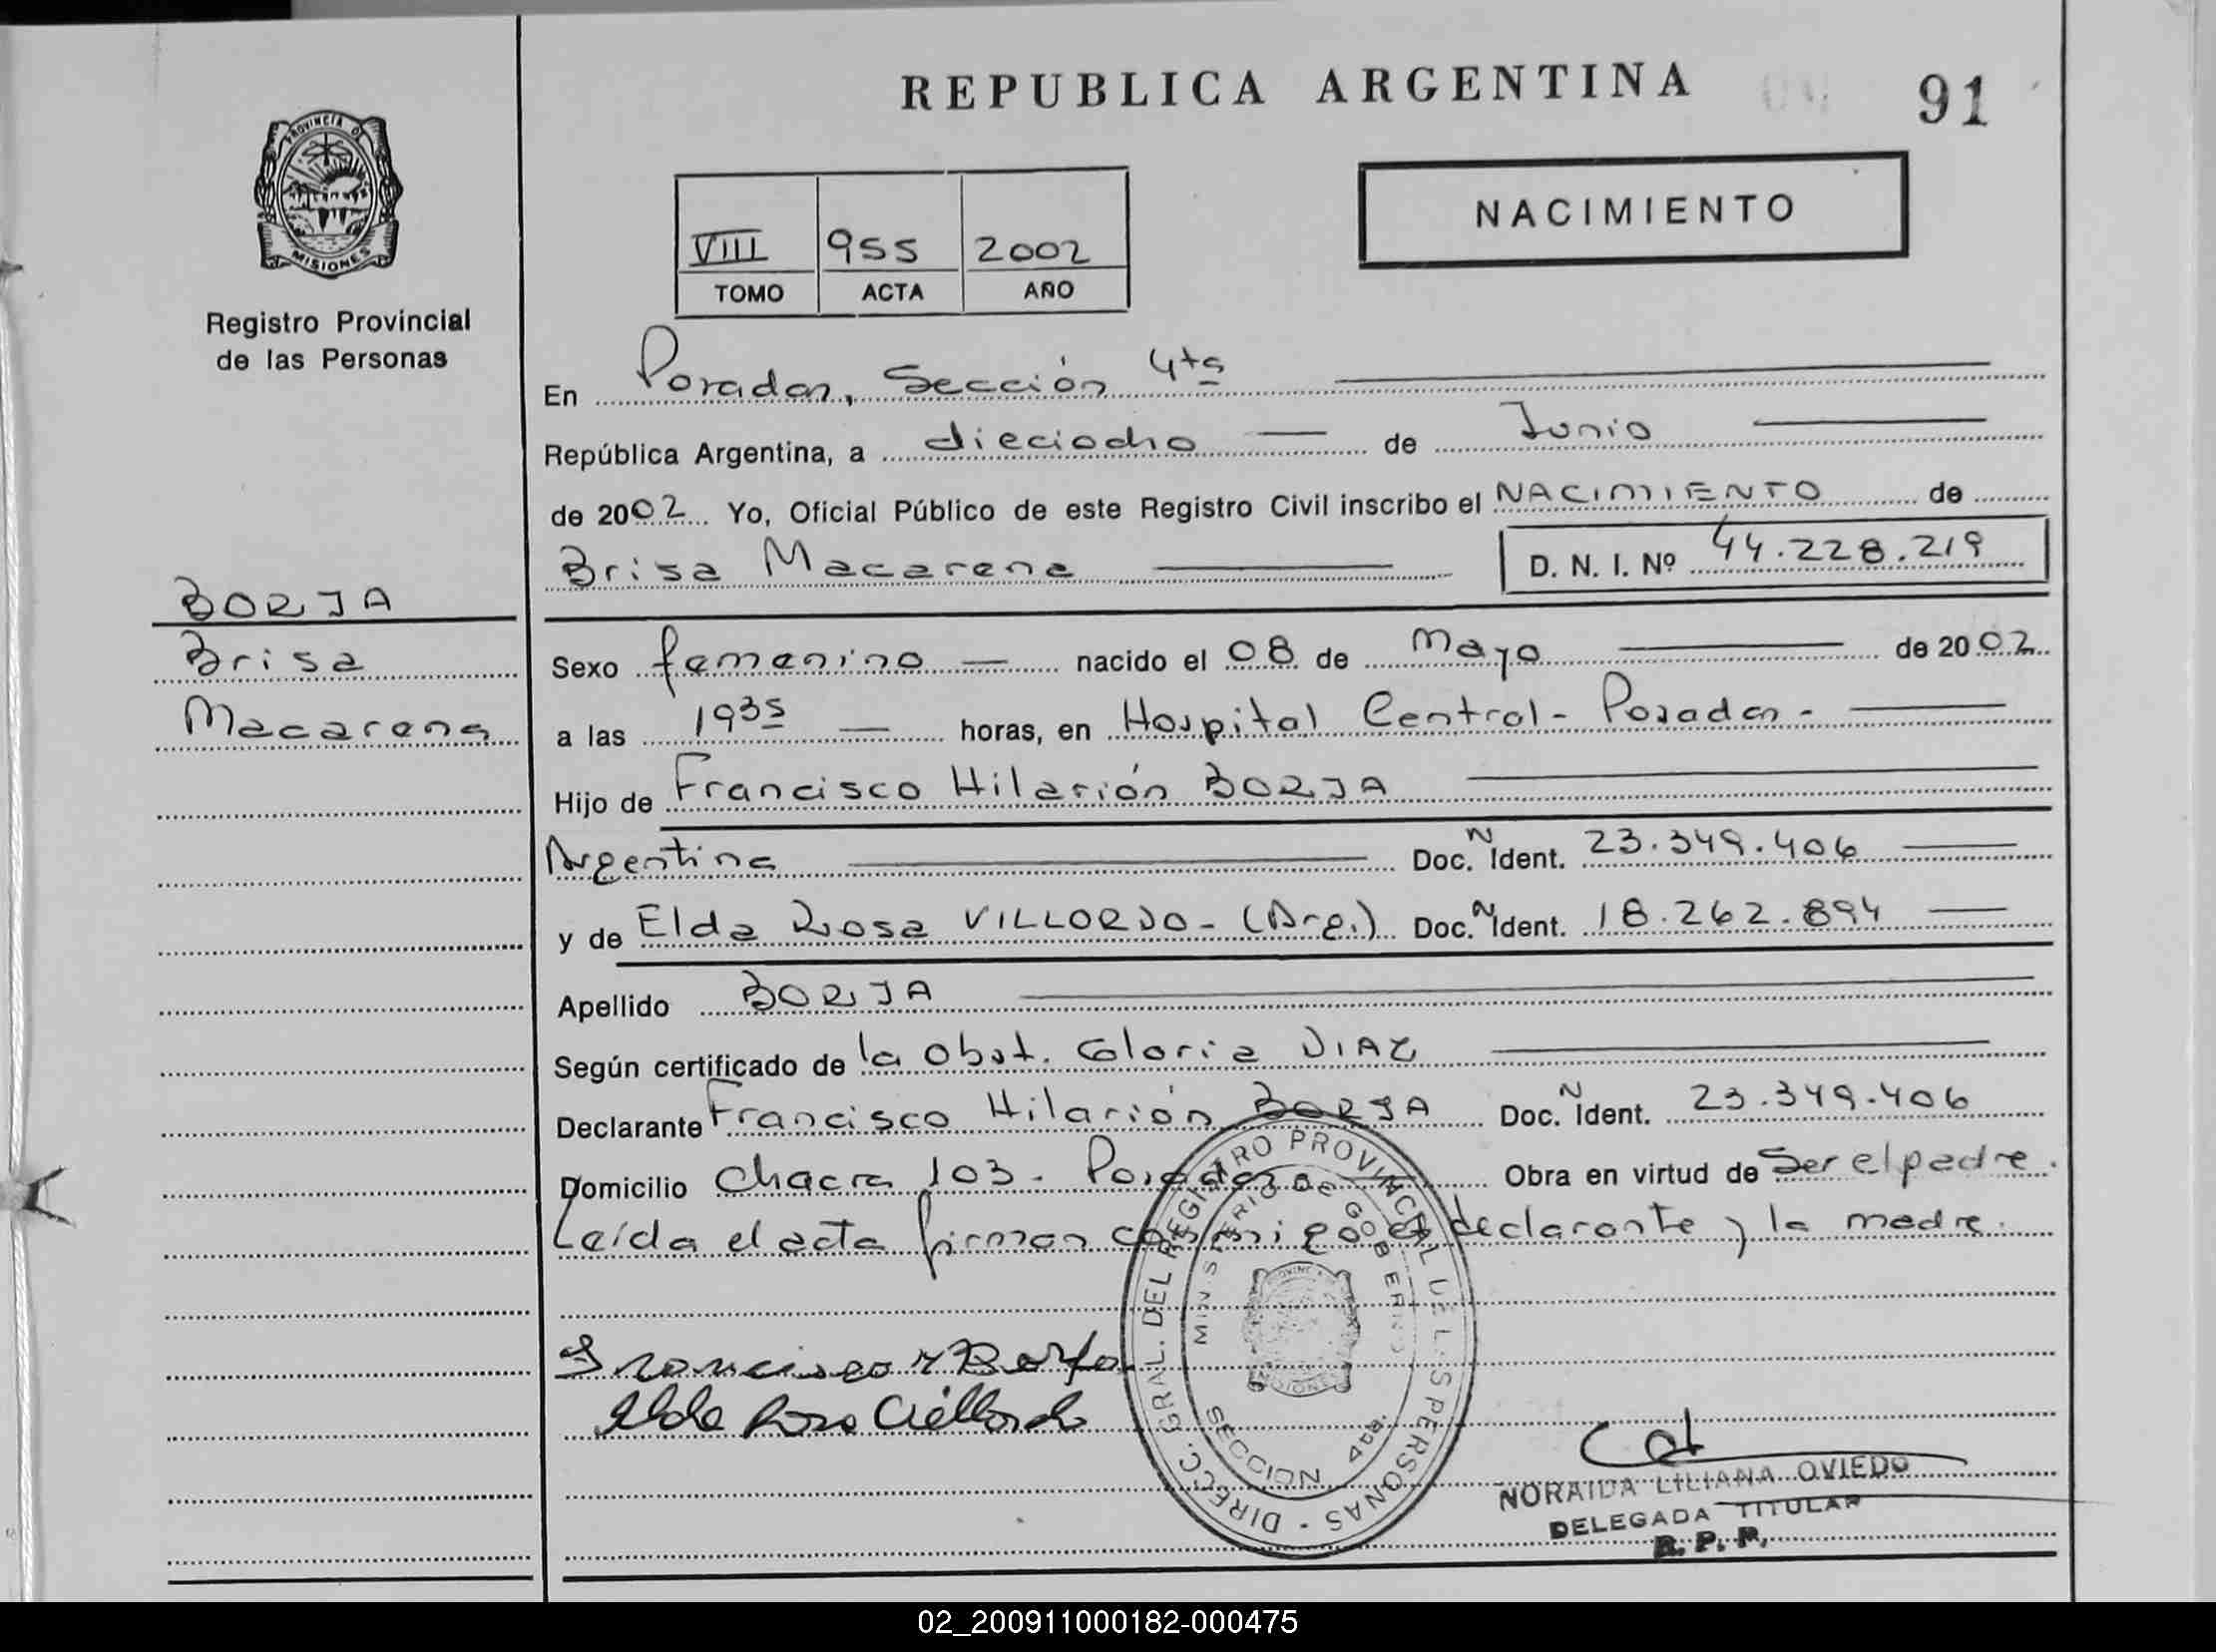 REPUBLICA ARGENTINA
91
PROVINCIA DE
MISIONES
Registro Provincial
de las Personas
VIII 955 2002
TOMO ACTA AÑO
NACIMIENTO
En Posadas, Sección 4ta
República Argentina, a dieciocho de Junio
de 2002 Yo, Oficial Público de este Registro Civil inscribo el NACIMIENTO de
Brisa Macarena D. N. I. Nº 44.228.219
BORJA
Brisa
Macarena
Sexo femenino nacido el 08 de Mayo de 2002
a las 1935 horas, en Hospital Central - Posadas -
Hijo de Francisco Hilarión BORJA
Argentina Doc. Ñ Ident. 23.349.406
y de Elda Rosa VILLORDO - (Arg.) Doc. Ñ Ident. 18.262.894
Apellido BORJA
Según certificado de la Obst. Gloria DIAZ
Declarante Francisco Hilarión BORJA Doc. Ñ Ident. 23.349.406
Domicilio Chacra 103 - Posadas Obra en virtud de Ser el padre.
Leída el acta firman conmigo el declarante y la madre.
DIRECC. GRAL. DEL REGISTRO PROVINCIAL DE LAS PERSONAS -
MINISTERIO DE GOBIERNO
SECCION 4ta.
Francisco H Borja
Elda Rosa Villordo
NORAIDA LILIANA OVIEDO
DELEGADA TITULAR
R. P. P.
02_200911000182-000475